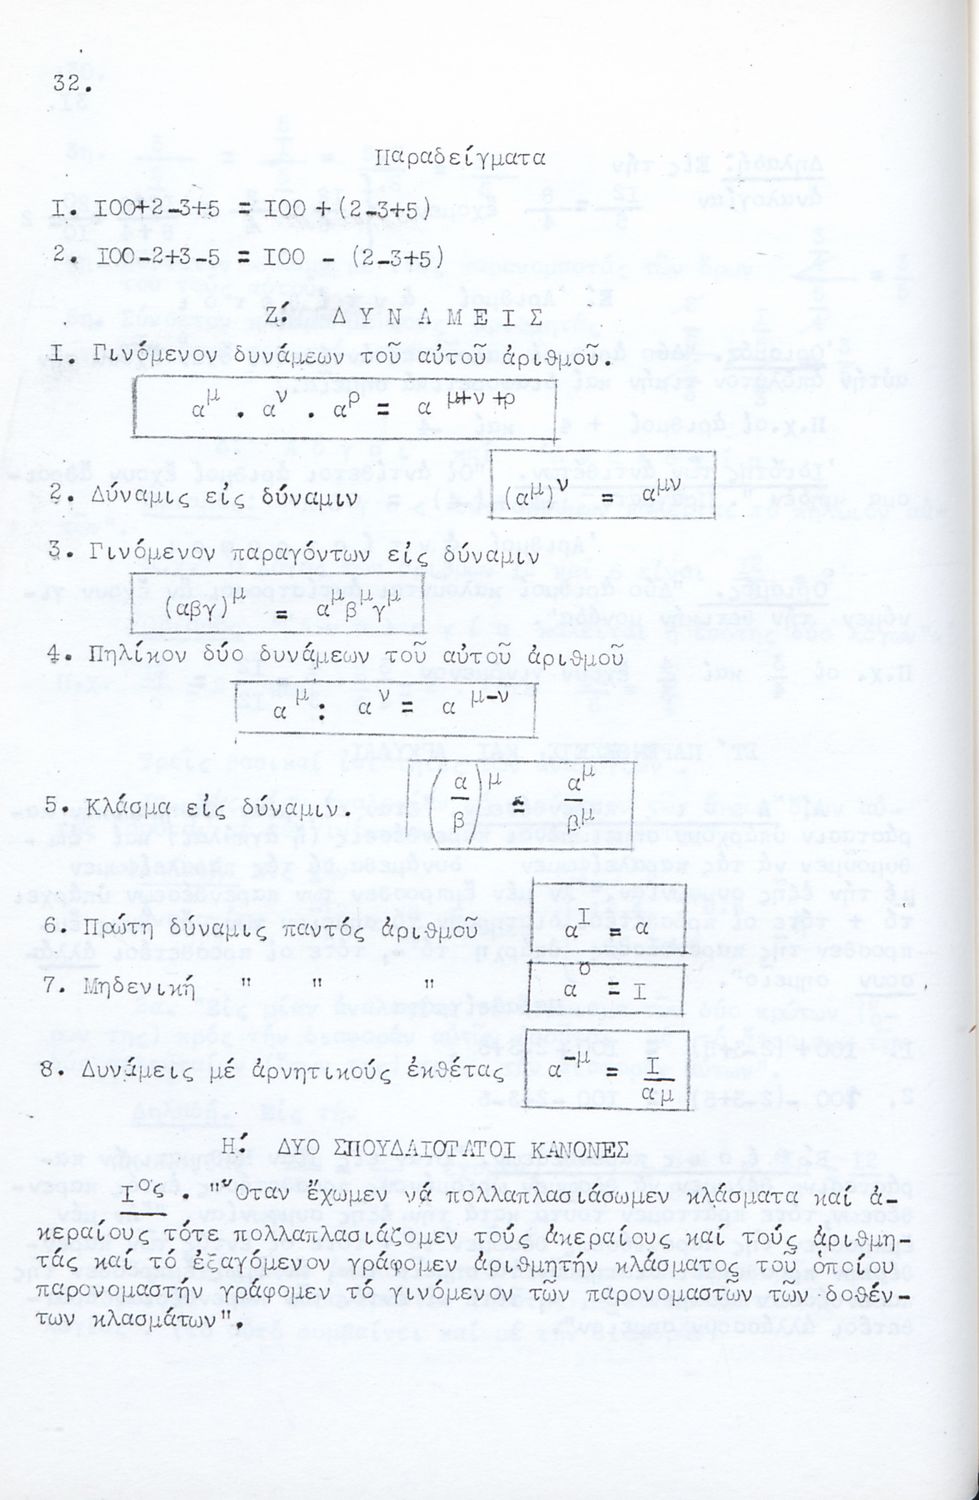 32.
Παραδείγματα
I. I00+2-3+5 = I00 + (2-3+5)
2. I00-2+3-5 = I00 - (2-3+5)
Ζ΄. ΔΥΝΑΜΕΙΣ
I. Γινόμενον δυνάμεων τοῦ αὐτοῦ ἀριθμοῦ.
α^μ . α^ν . α^ρ = α^μ+ν+ρ
2. Δύναμις εἰς δύναμιν (α^μ)^ν = α^μν
3. Γινόμενον παραγόντων εἰς δύναμιν
(αβγ)^μ = α^μ β^μ γ^μ
4. Πηλίκον δύο δυνάμεων τοῦ αὐτοῦ ἀριθμοῦ
α^μ : α^ν = α^μ-ν
5. Κλάσμα εἰς δύναμιν. (α/β)^μ = α^μ/β^μ
6. Πρώτη δύναμις παντός ἀριθμοῦ α^I = α
7. Μηδενική " " " α^0 = I
8. Δυνάμεις μέ ἀρνητικούς ἐκθέτας α^-μ = I/α^μ
Η΄. ΔΥΟ ΣΠΟΥΔΑΙΟΤΑΤΟΙ ΚΑΝΟΝΕΣ
I^ος. "Ὅταν ἔχωμεν νά πολλαπλασιάσωμεν κλάσματα καί ἀ-
κεραίους τότε πολλαπλασιάζομεν τούς ἀκεραίους καί τούς ἀριθμη-
τάς καί τό ἐξαγόμενον γράφομεν ἀριθμητήν κλάσματος τοῦ ὁποίου
παρονομαστήν γράφομεν τό γινόμενον τῶν παρονομαστῶν τῶν δοθέν-
των κλασμάτων".